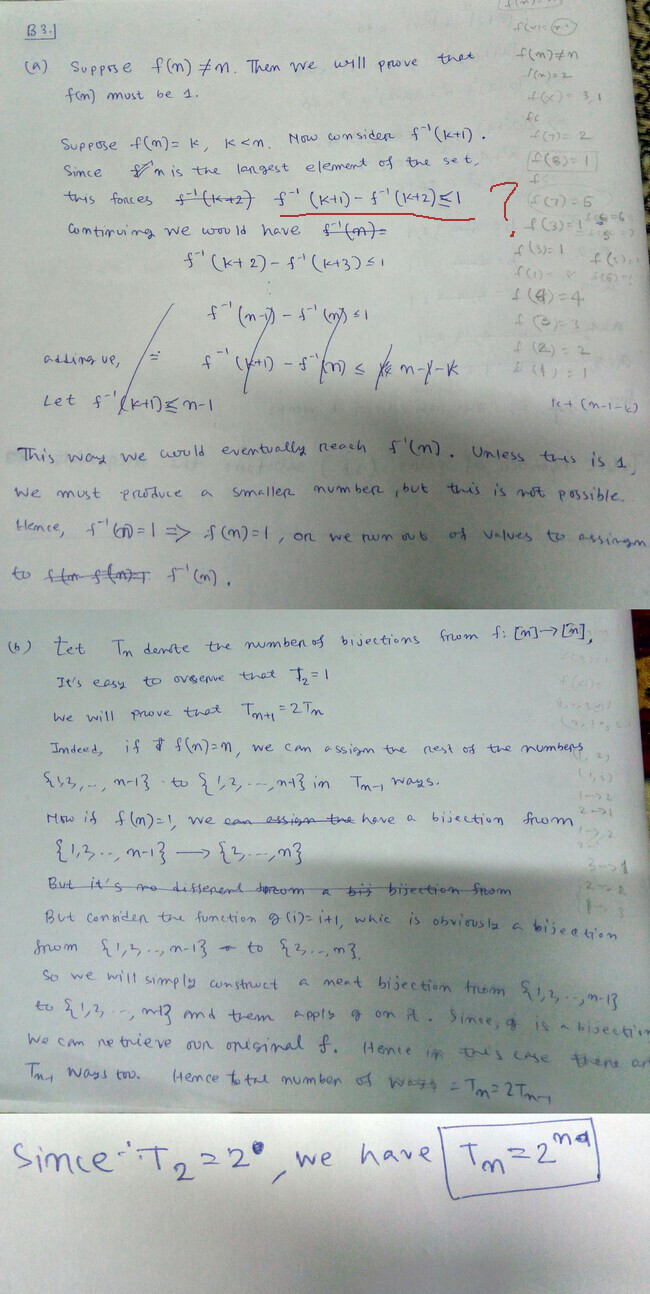 B3.
(a) Suppose f(n) ≠ n. Then we will prove that
f(n) must be 1.
Suppose f(n) = k, k < n. Now consider f⁻¹(k+1).
Since n is the largest element of the set,
this forces f⁻¹(k+2) f⁻¹(k+1) - f⁻¹(k+2) ≤ 1 ?
Continuing we would have f⁻¹(n)=
f⁻¹(k+2) - f⁻¹(k+3) ≤ 1
⋮
f⁻¹(n-1) - f⁻¹(n) ≤ 1
adding up, = f⁻¹(k+1) - f⁻¹(n) ≤ n-1-k
Let f⁻¹(k+1) ≤ n-1
This way we would eventually reach f⁻¹(n). Unless this is 1,
we must produce a smaller number, but this is not possible.
Hence, f⁻¹(n)=1 => f(n)=1, or we run out of values to assingn
to f⁻¹(n).
f(m)≠n
f(n)=2
f(x) = 3, 1
f(7) = 2
f(8) = 1
f(7) = 5
f(3) = 1
f(3) = 1
f(4) = 4
f(3) = 3
f(2) = 2
f(1) = 1
k + (n-1-k)
(b) Let Tn denote the number of bijections from f: [n]→[n],
It's easy to overve that T₂ = 1
We will prove that Tn+1 = 2Tn
Indeed, if f(n)=n, we can assign the rest of the numbers
{1,2,.., n-1} to {1,2,...,n-1} in Tn-1 ways.
Now if f(n)=1, we can assign the have a bijection from
{1,2,.., n-1} → {2,...,n}
But it's no different from a bij bijection from
But consider the function g(i)=i+1, whic is obviously a bijection
from {1,2,..,n-1} to {2,..,n}.
So we will simply construct a neat bijection from {1,2,..,n-1}
to {1,2,..,n-1} and them apply g on it. Since, g is a bijection
we can retrieve our original f. Hence in this case there are
Tn-1 ways too. Hence total number of ways = Tn = 2Tn-1
Since ∵ T₂ = 2⁰, we have Tn = 2